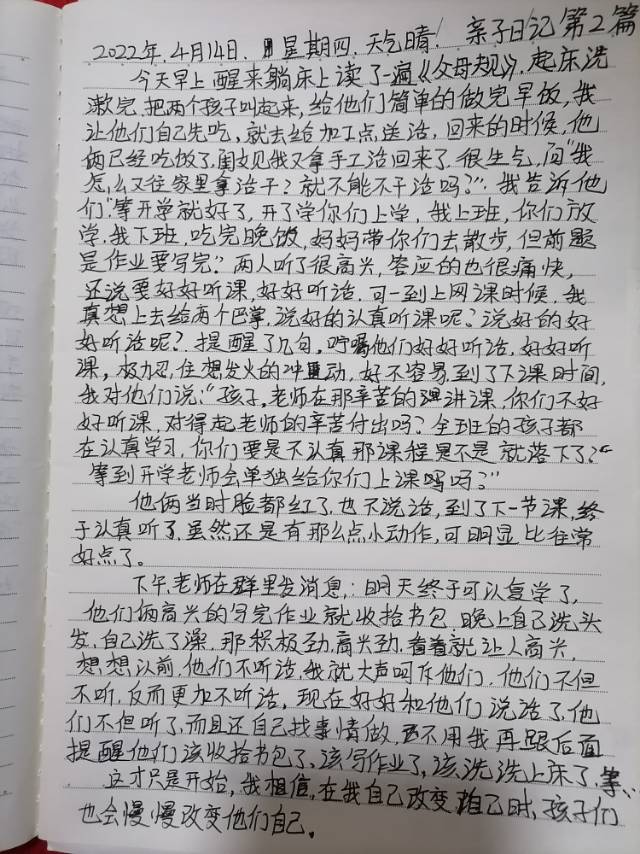 亲子日记第2篇
2022年.4月14日.星期四.天气晴!
今天早上醒来躺床上读了一遍《父母规》.起床洗
漱完,把两个孩子叫起来,给他们简单的做完早饭,我
让他们自己先吃,就去给加工点送活,回来的时候,他
俩已经吃饭了.闺女见我又拿手工活回来了.很生气,问"我
怎么又往家里拿活干?就不能不干活吗?".我告诉他
们:"等开学就好了,开了学你们上学,我上班,你们放
学.我下班,吃完晚饭,妈妈带你们去散步,但前题
是作业要写完".两人听了很高兴,答应的也很痛快,
还说要好好听课,好好听话.可一到上网课时候,我
真想上去给两个巴掌,说好的认真听课呢?说好的好
好听话呢?提醒了几句,叮嘱他们好好听话,好好听
课,极力忍住想发火的冲动,好不容易到了下课时间,
我对他们说:"孩子,老师在那辛苦的讲课,你们不好
好听课,对得起老师的辛苦付出吗?全班的孩子都
在认真学习,你们要是不认真那课程是不是就落下了?
等到开学老师会单独给你们上课吗?"
他俩当时脸都红了.也不说话,到了下一节课,终
于认真听了.虽然还是有那么点小动作,可明显比往常
好点了。
下午,老师在群里发消息:明天终于可以复学了,
他们俩高兴的写完作业就收拾书包.晚上自己洗头
发,自己洗了澡,那积极劲,高兴劲,看着就让人高兴,
想想以前,他们不听话,我就大声呵斥他们,他们不但
不听,反而更加不听话,现在好好和他们说话了,他
们不但听了,而且还自己找事情做,不用我再跟后面
提醒他们该收拾书包了,该写作业了,该洗洗上床了.等..
这才只是开始,我相信,在我自己改变自己时,孩子们
也会慢慢改变他们自己.